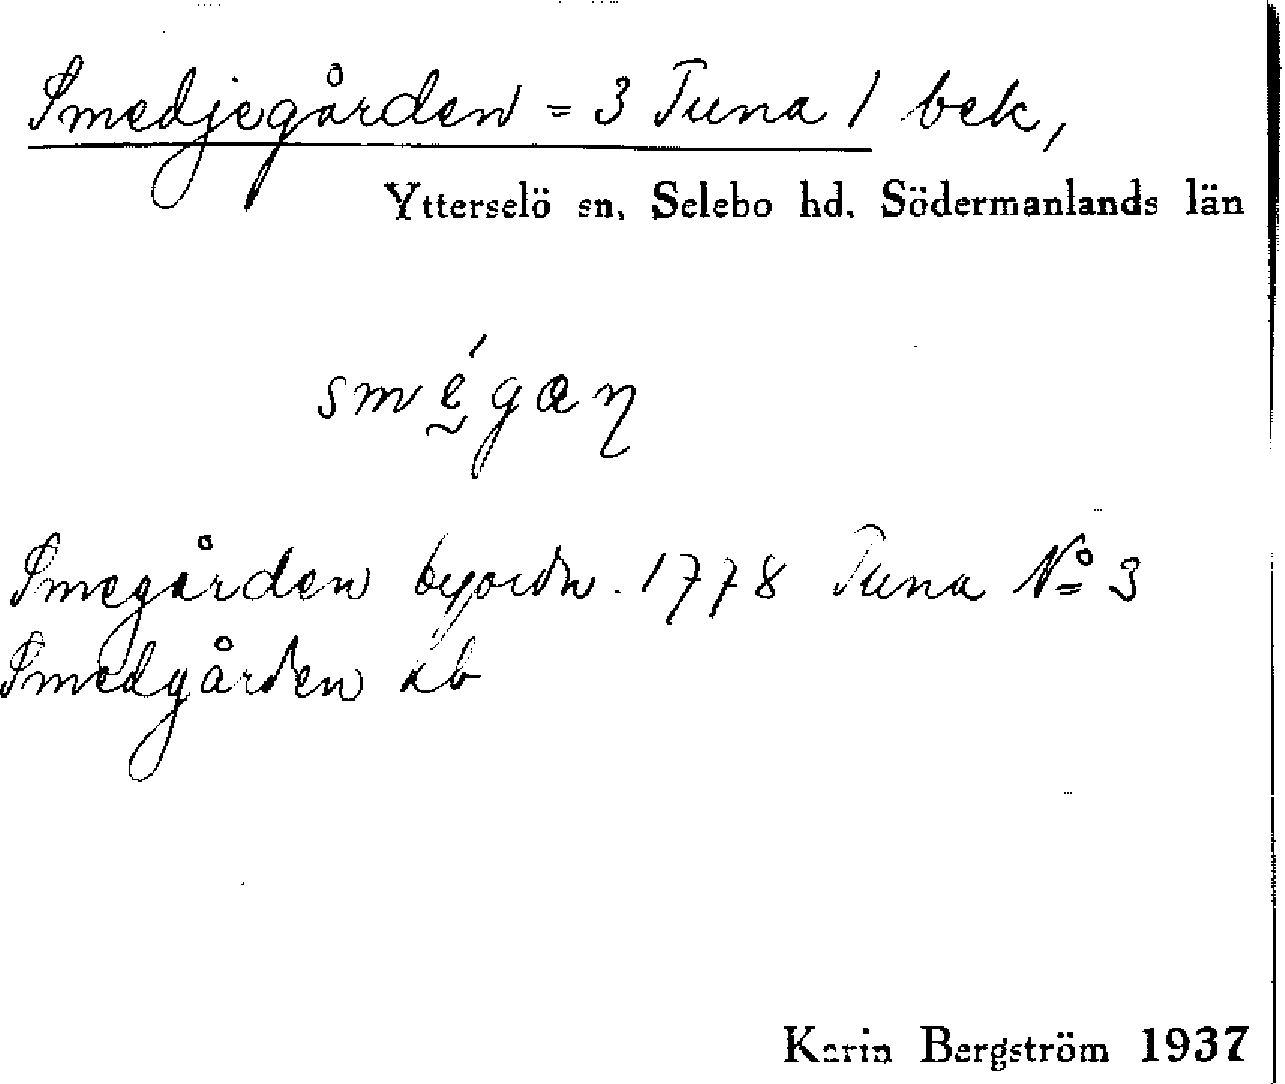 Smedjegården = 3 Tuna / bek,
Ytterselö sn, Selebo hd. Södermanlands län
smḛ́gaɳ
Smegården byordn. 1778 Tuna No 3
Smedgården ab
Karin Bergström 1937